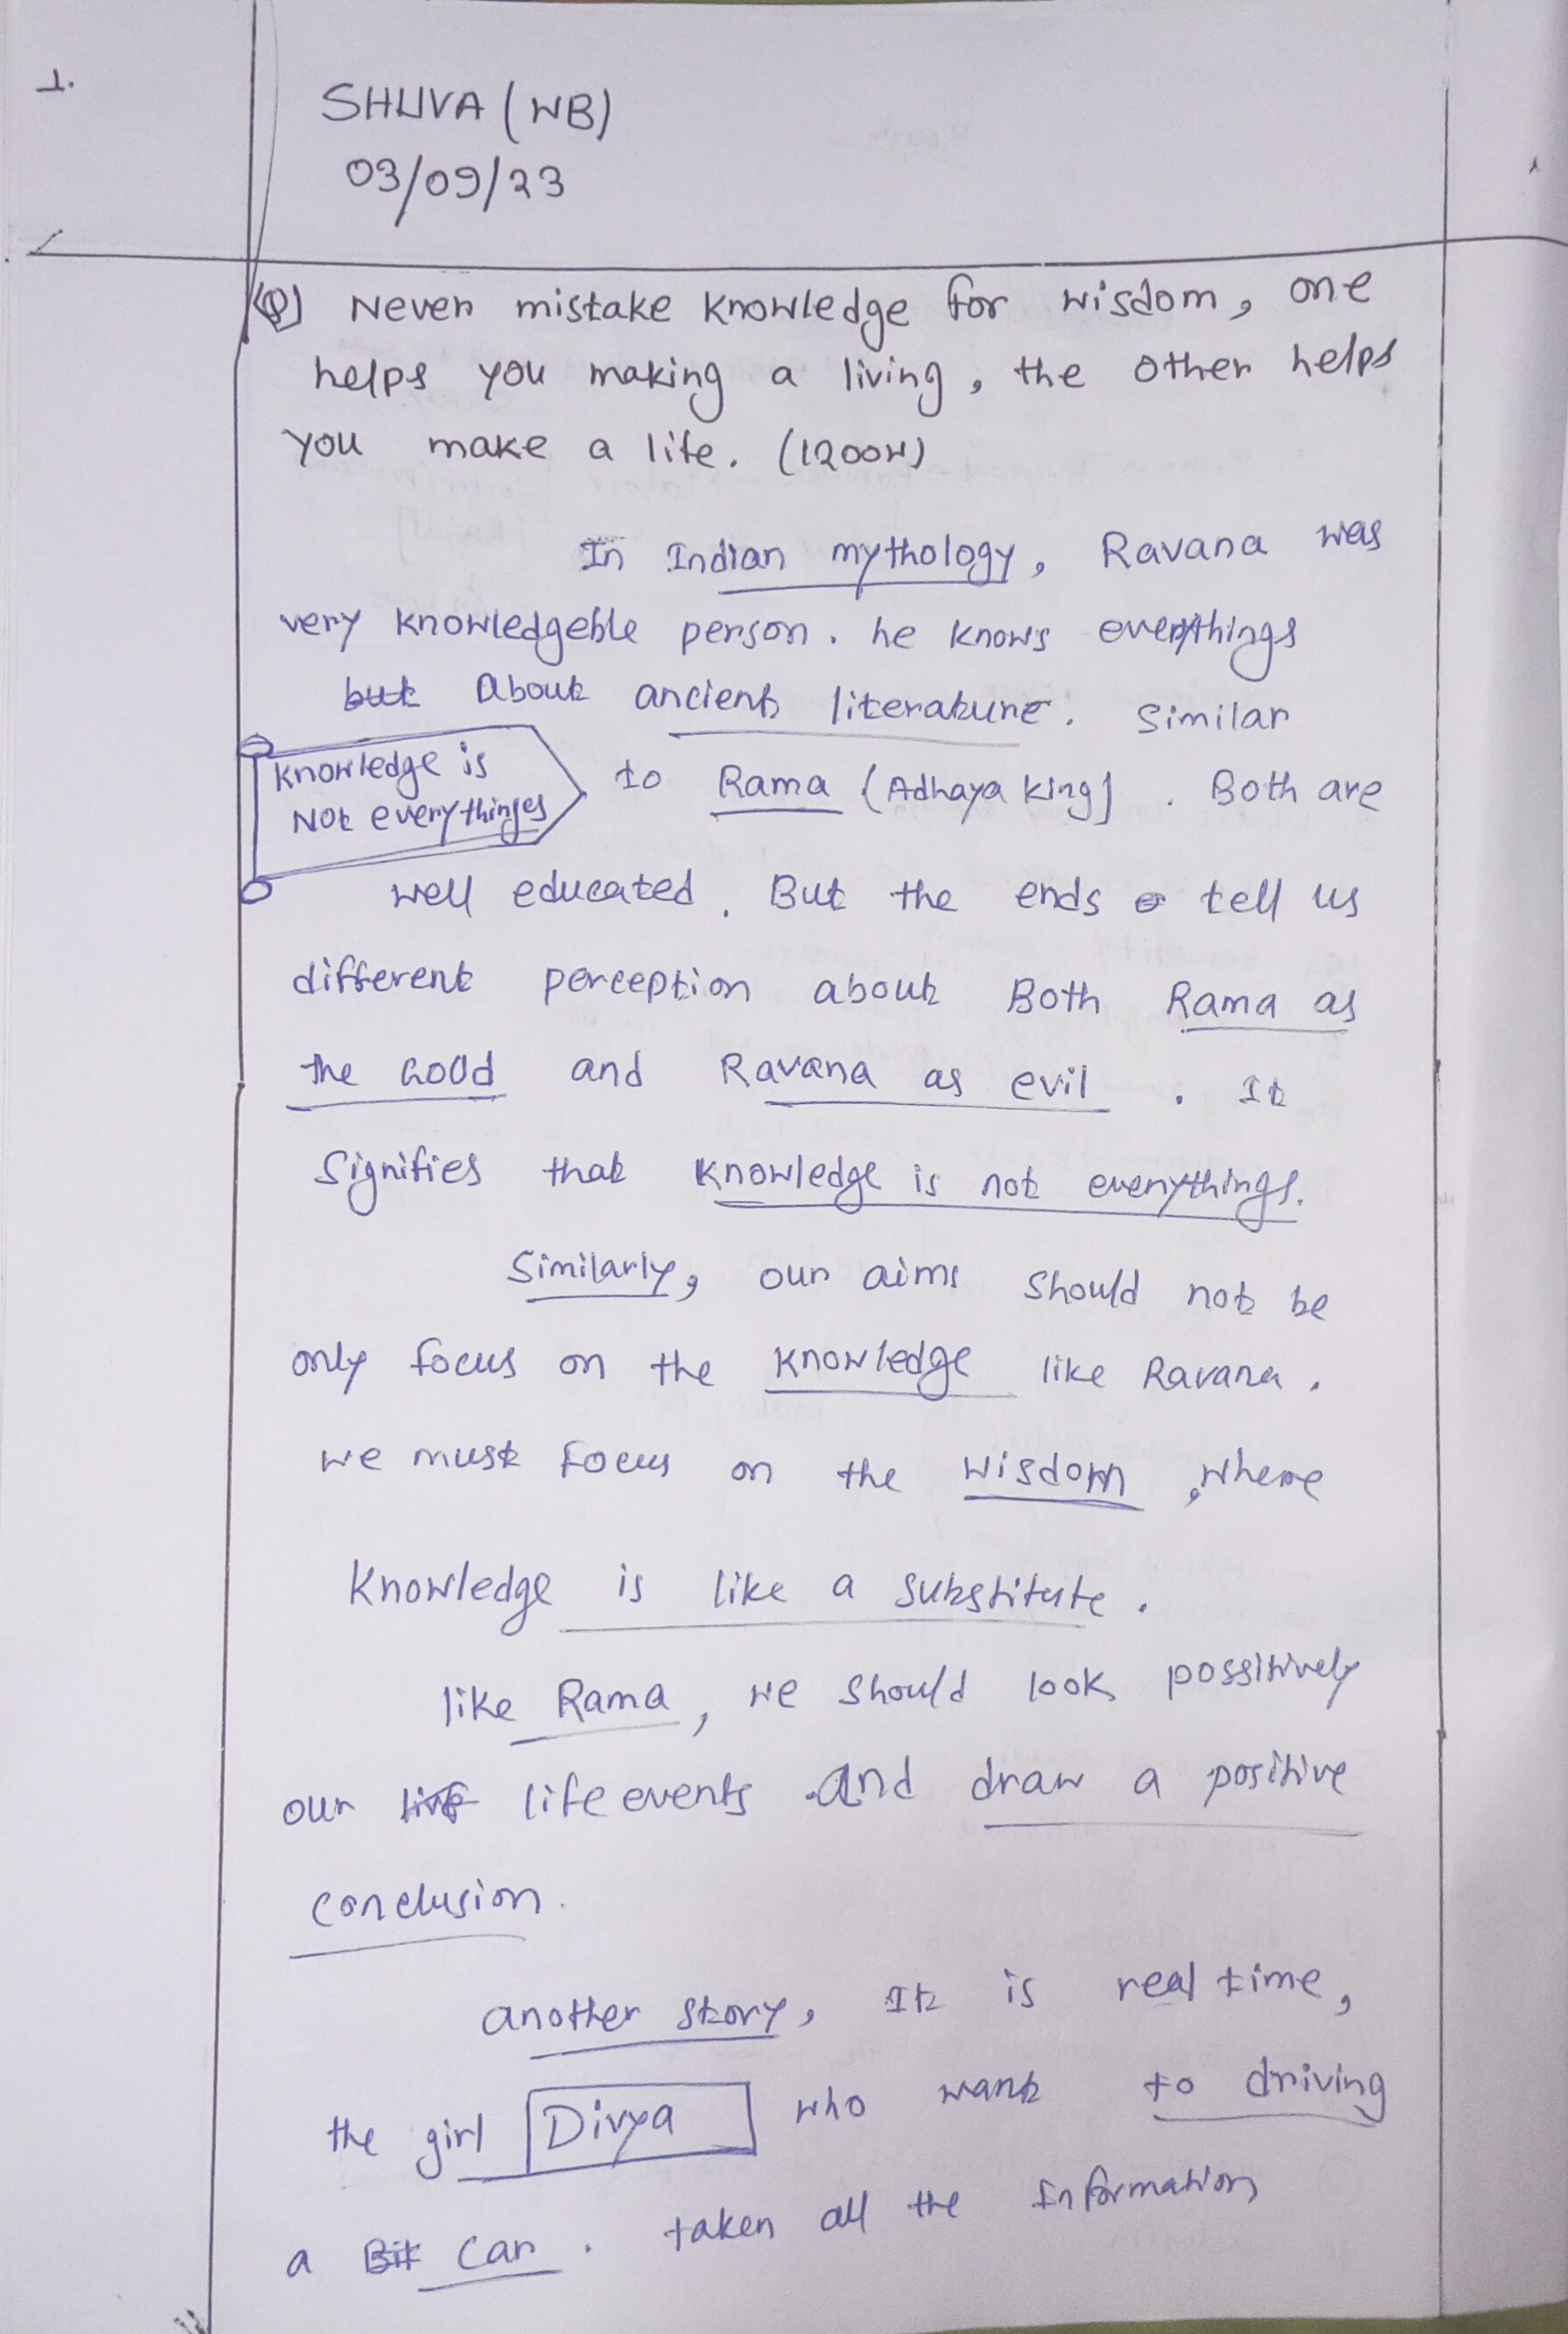 1.
SHUVA (WB)
03/09/23
(Q) Never mistake knowledge for wisdom, one
helps you making a living, the other helps
you make a life. (1200W)
In Indian mythology, Ravana was
very knowledgeble person. he knows everythings
but About ancient literature. Similar
Knowledge is
Not everythinges
to Rama (Adhaya king] . Both are
well educated. But the ends tell us
different perception about Both Rama as
the Good and Ravana as evil. It
Signifies that knowledge is not everythings.
Similarly, our aims should not be
only focus on the knowledge like Ravana.
we must focus on the wisdom, where
Knowledge is like a substitute.
like Rama, we should look possitively
our life events and draw a positive
conclusion.
another story, It is real time,
the girl Divya who want to driving
a Bit Car. taken all the Information